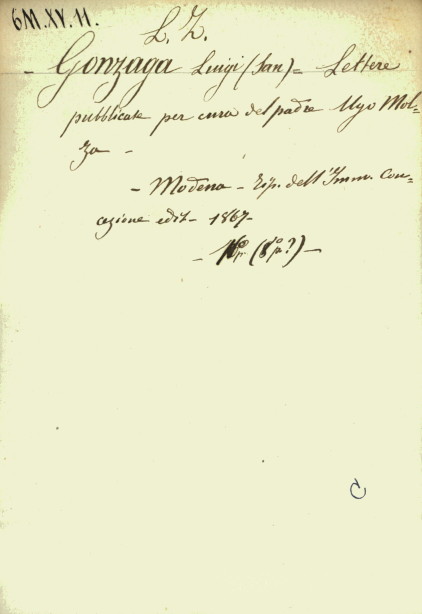 6M.XV.11.
L. Z.
- Gonzaga Luigi (San) = Lettere
pubblicate per cura del padre Ugo Mol=
za -
- Modena - Tip. dell'Imm. Con=
cezione edit - 1867 -
- (8°?) -
C